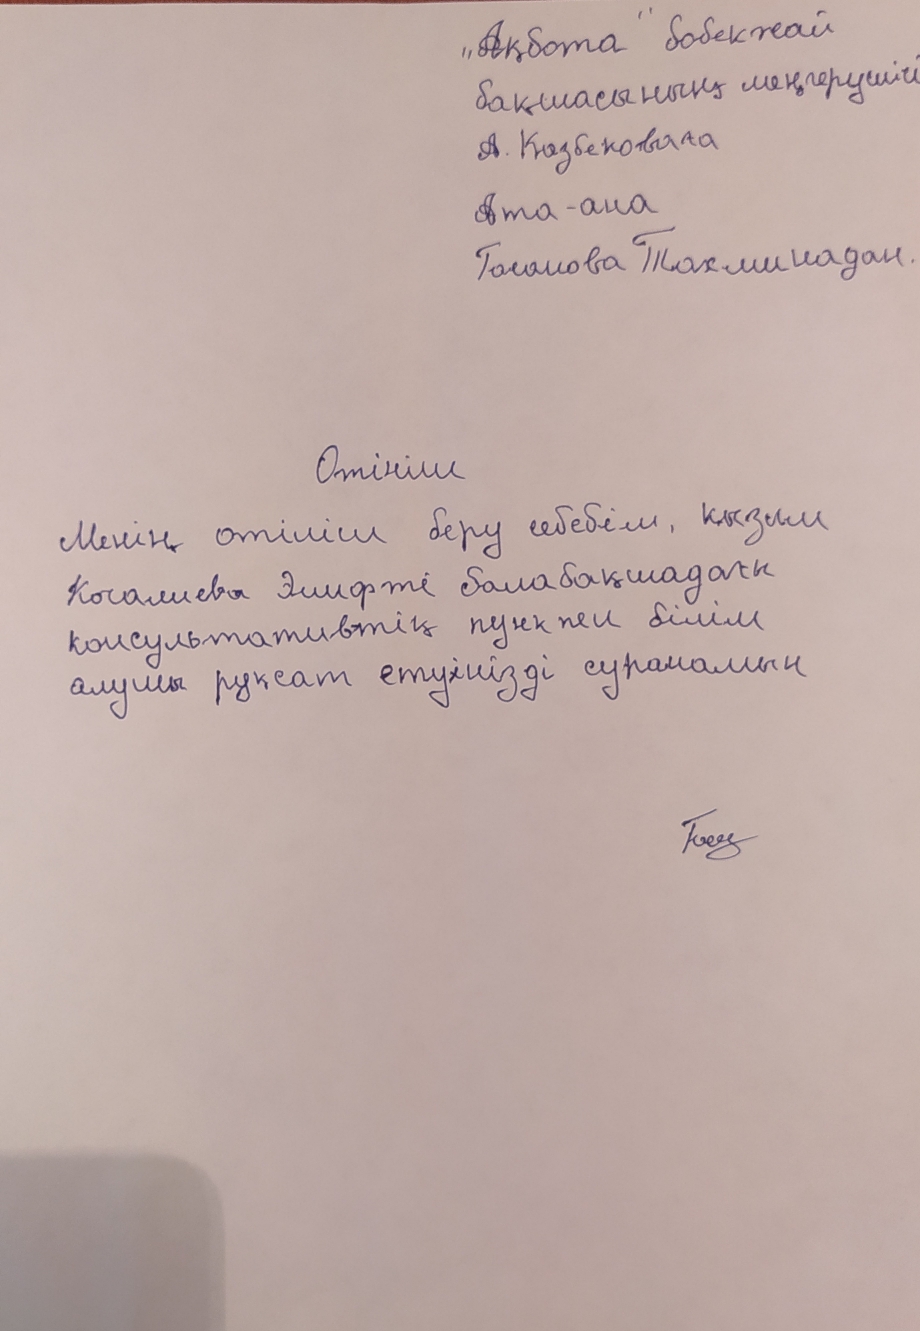 „Ақбота" бобекжай
бақшасының меңгерушісі
А. Казбековаға
Ата-ана
Тасанова Тахминадан.
Отініш
Менің отініш беру себебім, қызым
Косалиева Элифті балабақшадағы
консультативтік пункпен білім
алушы рұқсат етуіңізді сұранамын